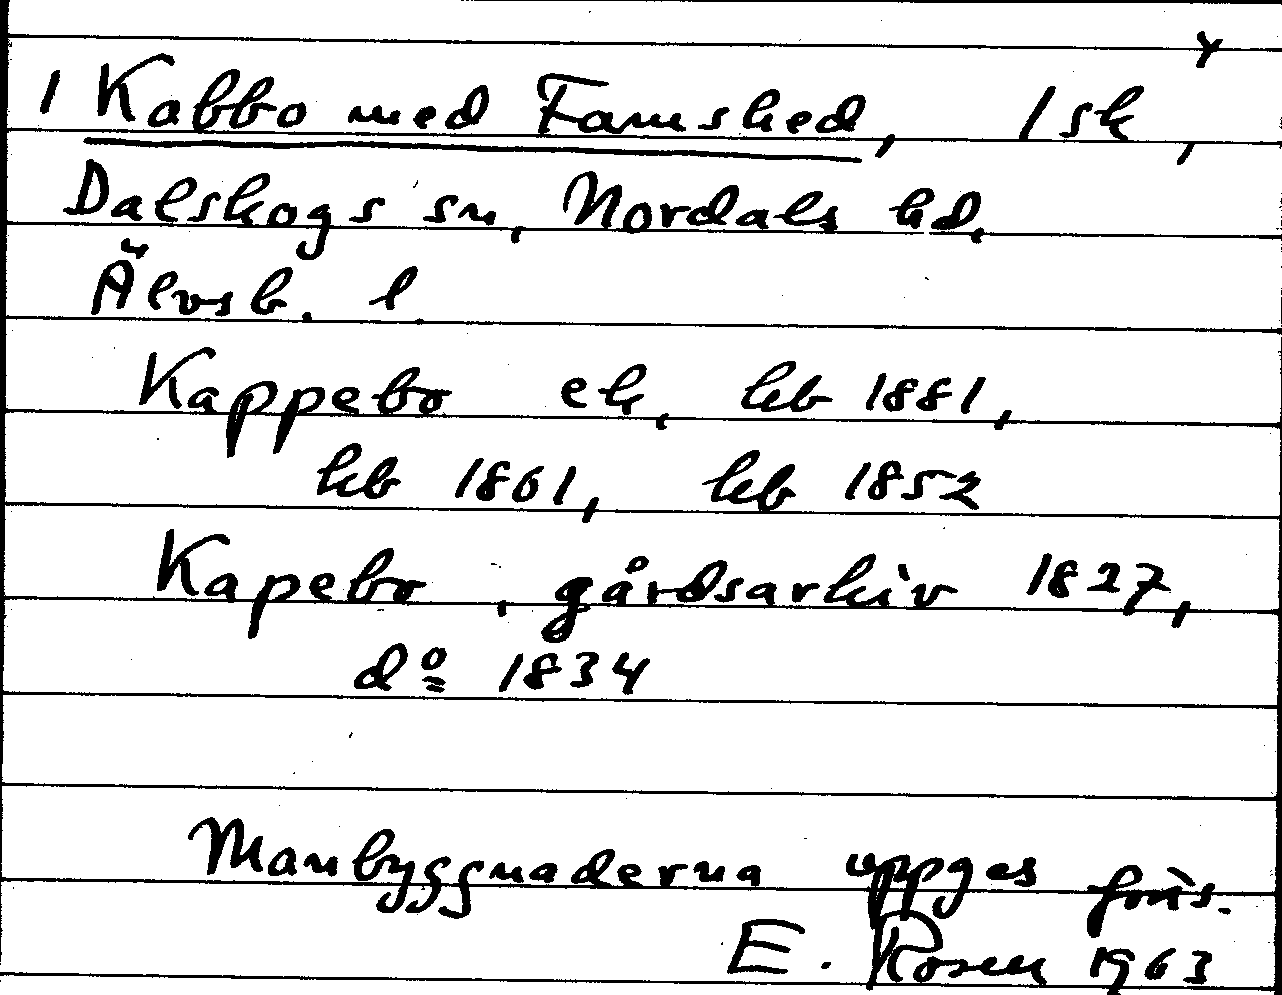 1 Kabbo med Famshed, 1 sk,
Dalskogs sn, Nordals hd,
Älvsb. l.
Kappebo ek, kb 1881,
kb 1861, kb 1852
Kapebo, gårdsarkiv 1827,
dº 1834
Manbyggnaderna uppges
E. Rosen 1963